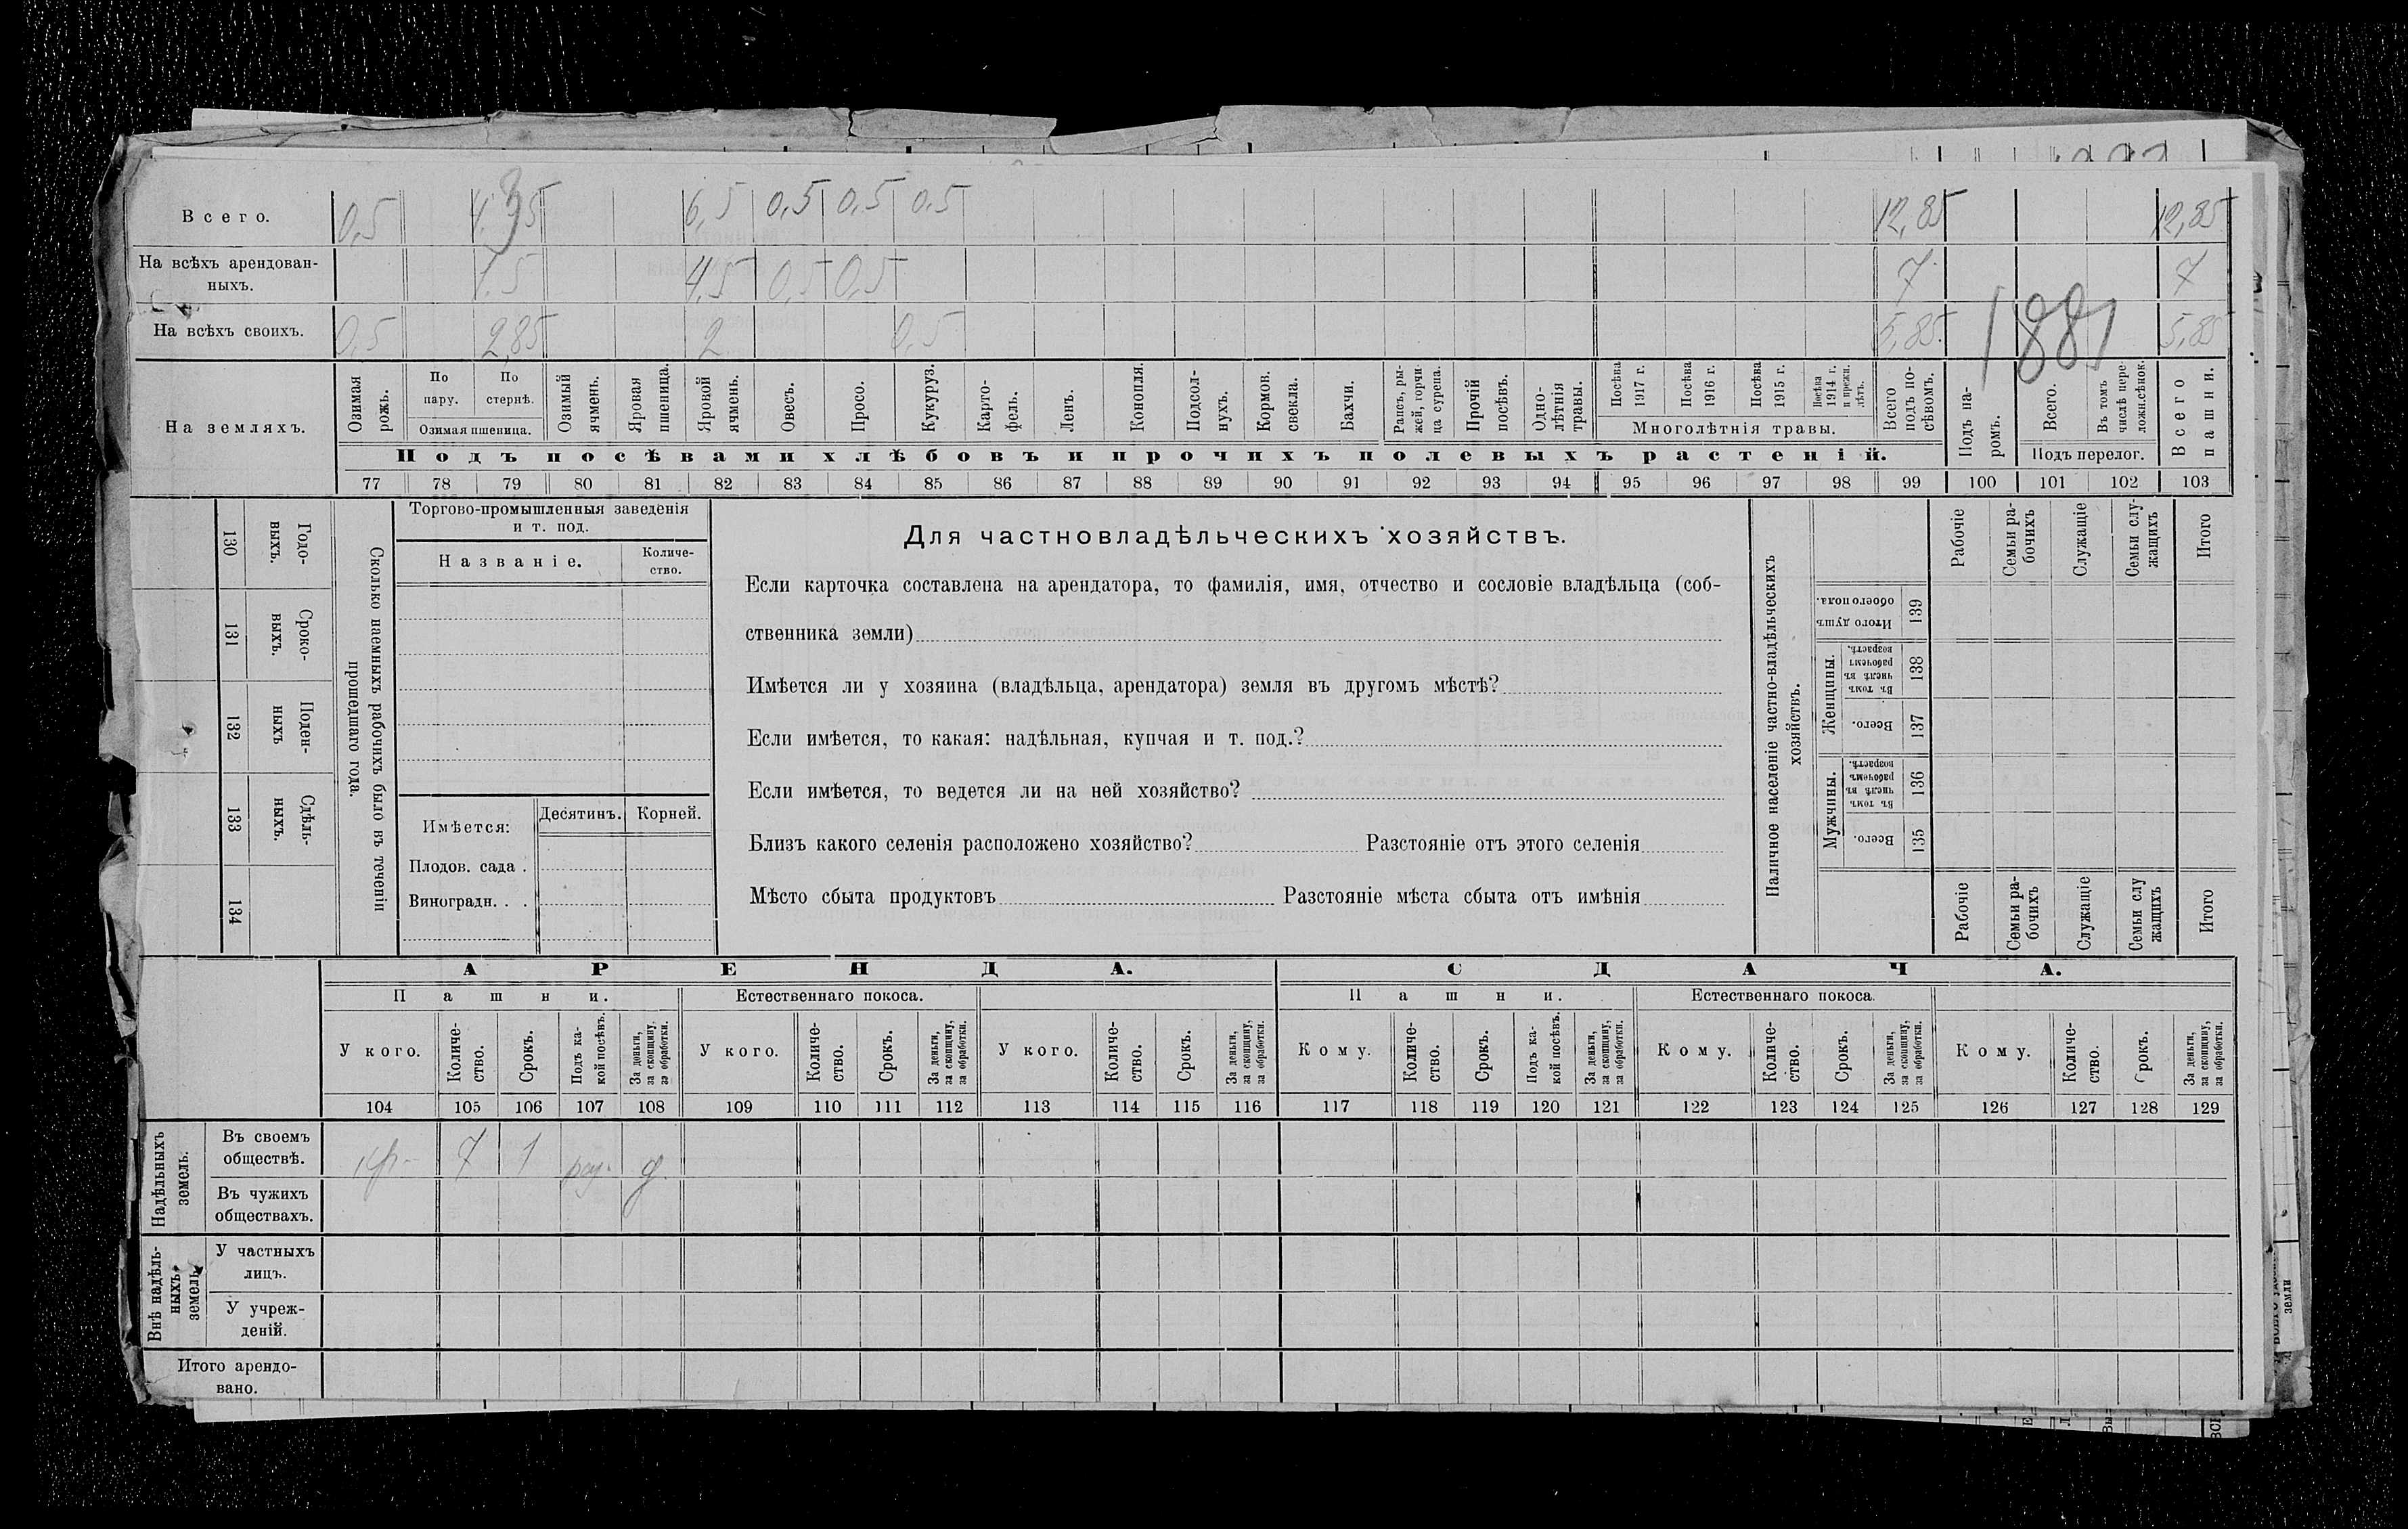 Всего. 0,5 4,35 6,5 0,5 0,5 0,5 12,85 12,85
На всѣхъ арендован-
ныхъ. 1,5 4,5 0,5 0,5 7 7
На всѣхъ своихъ. 0,5 2,85 2 0,5 5,85 5,85
1881
На земляхъ.
Озимая рожь.
По пару.
По стернѣ.
Озимая пшеница.
Озимый ячмень.
Яровая пшеница.
Яровой ячмень.
Овесъ.
Просо.
Кукуруз.
Карто-
фель.
Ленъ.
Конопля.
Подсол-
нухъ.
Кормов. свекла.
Бахчи.
Рапсъ, ры-
жей, горчи-
ца сурепа.
Прочій посѣвъ.
Одно-
лѣтнія травы.
Посѣва 1917 г.
Посѣва 1916 г.
Посѣва 1915 г.
Посѣва 1914 г. и прежн. лѣтъ.
Многолѣтнія травы.
Всего подъ по-
сѣвомъ.
Подъ па-
ромъ.
Всего.
Въ томъ числѣ пере-
ложн.сѣнок.
Подъ перелог.
Всего пашни.
Подъ посѣвами хлѣбовъ и прочихъ полевыхъ растеній.
77 78 79 80 81 82 83 84 85 86 87 88 89 90 91 92 93 94 95 96 97 98 99 100 101 102 103
Годо-
выхъ.
130
Сроко-
выхъ.
131
Поден-
ныхъ
132
Сдѣль-
ныхъ.
133
134
Сколько наемныхъ рабочихъ было въ теченіи
прошедшаго года.
Торгово-промышленныя заведенія
и т. под.
Названіе.
Количе-
ство.
Имѣется: Десятинъ. Корней.
Плодов. сада .
Виноградн. . .
Для частновладѣльческихъ хозяйствъ.
Если карточка составлена на арендатора, то фамилія, имя, отчество и сословіе владѣльца (соб-
ственника земли)
Имѣется ли у хозяина (владѣльца, арендатора) земля въ другомъ мѣстѣ?
Если имѣется, то какая: надѣльная, купчая и т. под.?
Если имѣется, то ведется ли на ней хозяйство?
Близъ какого селенія расположено хозяйство? Разстояніе отъ этого селенія
Мѣсто сбыта продуктовъ Разстояніе мѣста сбыта отъ имѣнія
Наличное населеніе частно-владѣльческихъ
хозяйствъ.
Рабочіе
Семьи ра-
бочихъ
Служащіе
Семьи слу-
жащихъ
Итого
Итого душъ
обоего пола.
139
Женщины.
Въ томъ числѣ въ рабочемъ возрастѣ.
138
Всего.
137
Мужчины.
Въ томъ числѣ въ рабочемъ возрастѣ.
136
Всего.
135
Рабочіе
Семьи ра-
бочихъ
Служащіе
Семьи слу
жащихъ
Итого
АРЕНДА. СДАЧА.
Пашни. Естественнаго покоса. Пашни. Естественнаго покоса.
У кого.
Количе-
ство.
Срокъ.
Подъ ка-
кой посѣвъ.
За деньги,
за скопщину,
за обработки.
У кого.
Количе-
ство.
Срокъ.
За деньги,
за скопщину,
за обработки.
У кого.
Количе-
ство.
Срокъ.
За деньги,
за скопщину,
за обработки.
Кому.
Количе-
ство.
Срокъ.
Подъ ка-
кой посѣвъ.
За деньги,
за скопщину,
за обработки.
Кому.
Количе-
ство.
Срокъ.
За деньги,
за скопщину,
за обработки.
Кому.
Количе-
ство.
Срокъ.
За деньги,
за скопщину,
за обработки.
104 105 106 107 108 109 110 111 112 113 114 115 116 117 118 119 120 121 122 123 124 125 126 127 128 129
Надѣльныхъ
земель.
Въ своемъ
обществѣ. кр. 7 1 д.
Въ чужихъ
обществахъ.
Внѣ надѣль-
ныхъ
земель
У частныхъ
лицъ.
У учреж-
деній.
Итого арендо-
вано.
земли